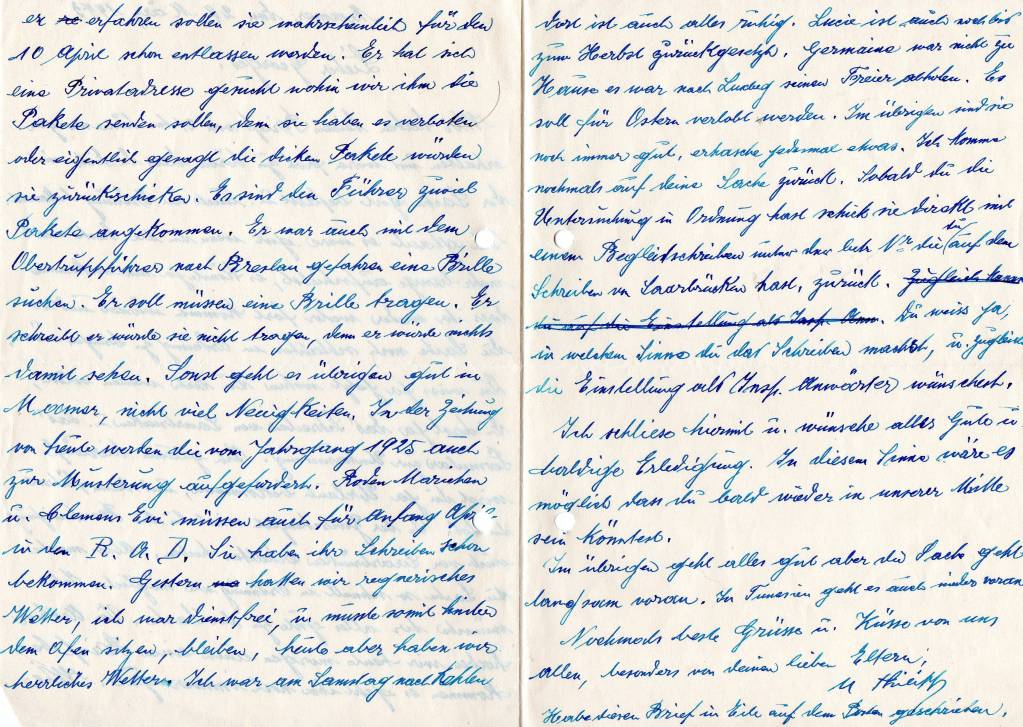 er erfahren sollen sie wahrscheinlich für den
10 April schon entlassen werden. Er hat sich
eine Privatadresse gesucht wohin wir ihm die
Pakete senden sollen, denn sie haben es verboten
oder eigentlich gesagt die dicken Pakete würden
sie zurückschicken. Es sind den Führer zuviel
Pakete angekommen. Er war auch mit dem
Obertruppführer nach Breslau gefahren eine Brille
suchen. Er soll müssen eine Brille tragen. Er
schreibt er würde sie nicht tragen, denn er würde nichts
damit sehen. Sonst geht es übrigen gut in
nicht viel Neuigkeiten. In der Zeitung
von heute werden die vom Jahrgang 1925 auch
zur Musterung aufgefordert. Roden Mariechen
u. Clemens Evi müssen auch für Anfang April
in den R. A. D. Sie haben ihr Schreiben schon
bekommen. Gestern hatten wir regnerisches
Wetter, ich war dienstfrei, u musste somit hinter
dem Ofen sitzen, bleiben, heute aber haben wir
herrliches Wetter. Ich war am Samstag nach Kehlen
dort ist auch alles ruhig. Lucie ist auch noch bis
zum Herbst zurückgesetzt. Germaine war nicht zu
Hause es war nach seinen Freier abholen. Es
soll für Ostern verlobt werden. Im übrigen sind sie
noch immer gut, erhasche jedesmal etwas. Ich komme
nochmals auf deine Sache zurück. Sobald du die
Untersuchung in Ordnung hast schick sie direkt mit
einem Begleitschreiben unter der Nr. die du auf dem
Schreiben von Saarbrücken hast, zurück. Zugleich
du auf die Einstellung als Insp. Anw. Du weiss ja,
in welchem Sinne du das Schreiben machst, u. zugleich
die Einstellung als Insp. Anwärter wünschest.
Ich schliese hiermit u. wünsche alles Gute u.
baldige Erledigung. In diesem Sinne wäre es
möglich dass du bald wieder in unserer Mitte
sein könntest.
Im übrigen geht alles gut aber die Sache geht
langsam voran. In Tunesien geht es auch wieder voran
Nochmals beste Grüsse u. Küsse von uns
allen, besonders von deinen lieben Eltern;
Habe diesen Brief in Eile auf dem Posten geschrieben.